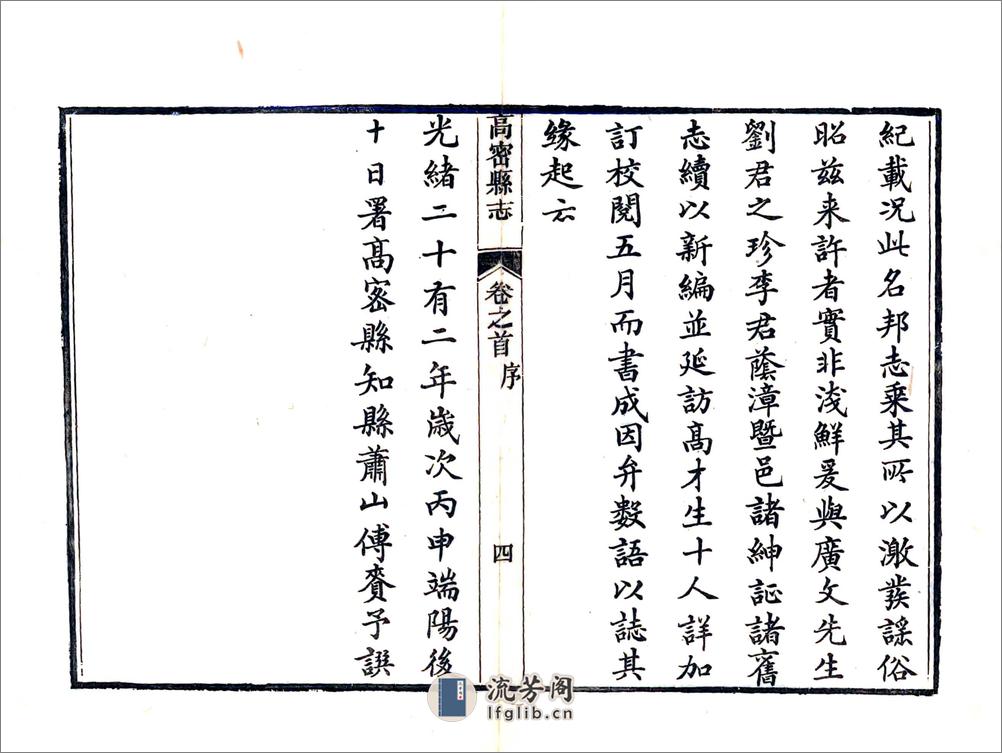 紀載況此名邦志乘其所以激發謡俗
昭兹来許者實非淺鮮爰與廣文先生
劉君之珍李君蔭漳暨邑諸紳証諸舊
志續以新編並延訪髙才生十人詳加
訂校閱五月而書成因弁數語以誌其
緣起云
高密縣志
卷之首
序
四
光緒二十有二年歲次丙申端陽後
十日署髙密縣知縣蕭山傅賚予譔
流芳阁
lfglib.cn